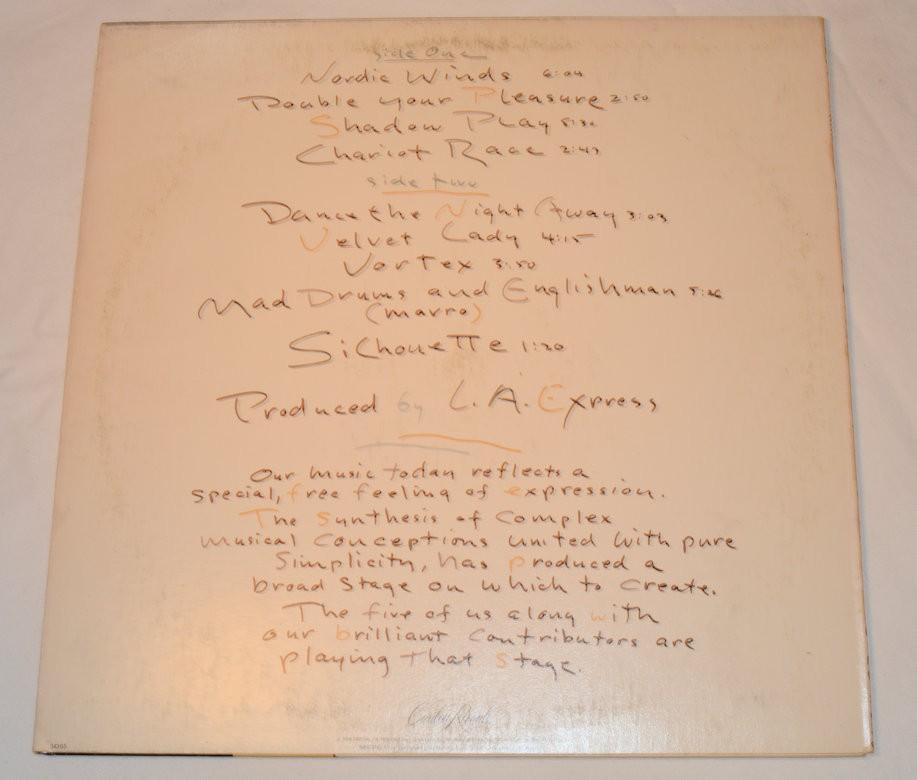 Side One
Nordic Winds 6:04
Double your Pleasure 2:50
Shadow Play 5:30
Chariot Race 2:47
side two
Dance the Night Away 3:03
Velvet Lady 4:15
Vortex 3:50
Mad Drums and Englishman 5:26
(marro)
Silhouette 1:20
Produced by L.A. Express
Our music today reflects a
special, free feeling of expression.
The Synthesis of Complex
musical Conceptions united with pure
Simplicity, has produced a
broad Stage on which to Create.
The five of us along with
our brilliant Contributors are
playing that Stage.